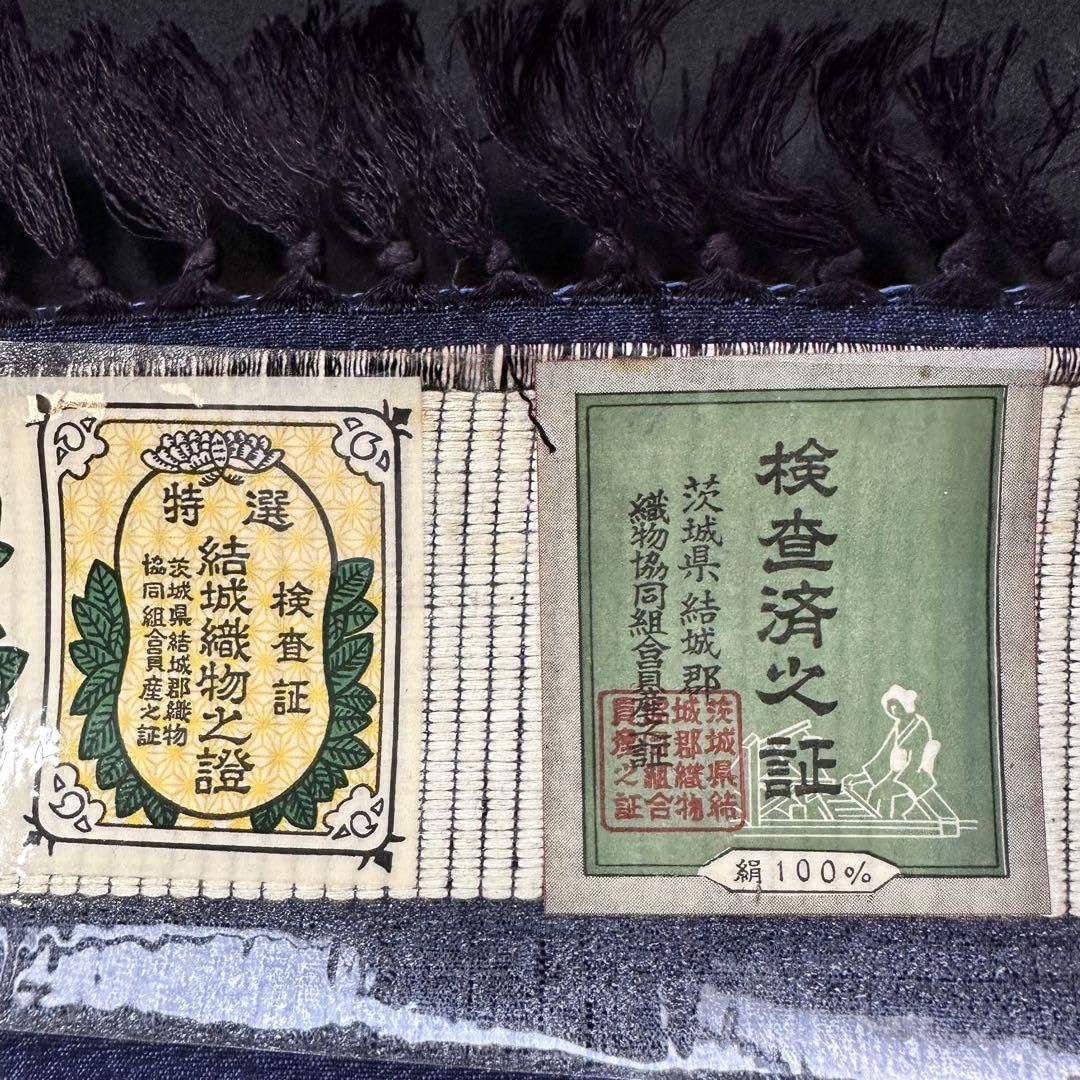 特選
検査証
結城織物之證
茨城県結城郡織物
協同組合員産之証
検査済之証
茨城県結城郡
織物協同組合員産之証
茨城県結
城郡織物
協同組合
員産之証
絹100%